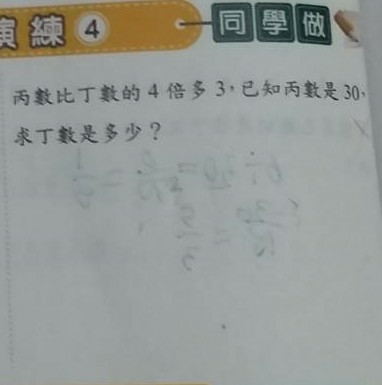 演練 4 同學做
丙數比丁數的 4 倍多 3，已知丙數是 30，
求丁數是多少？